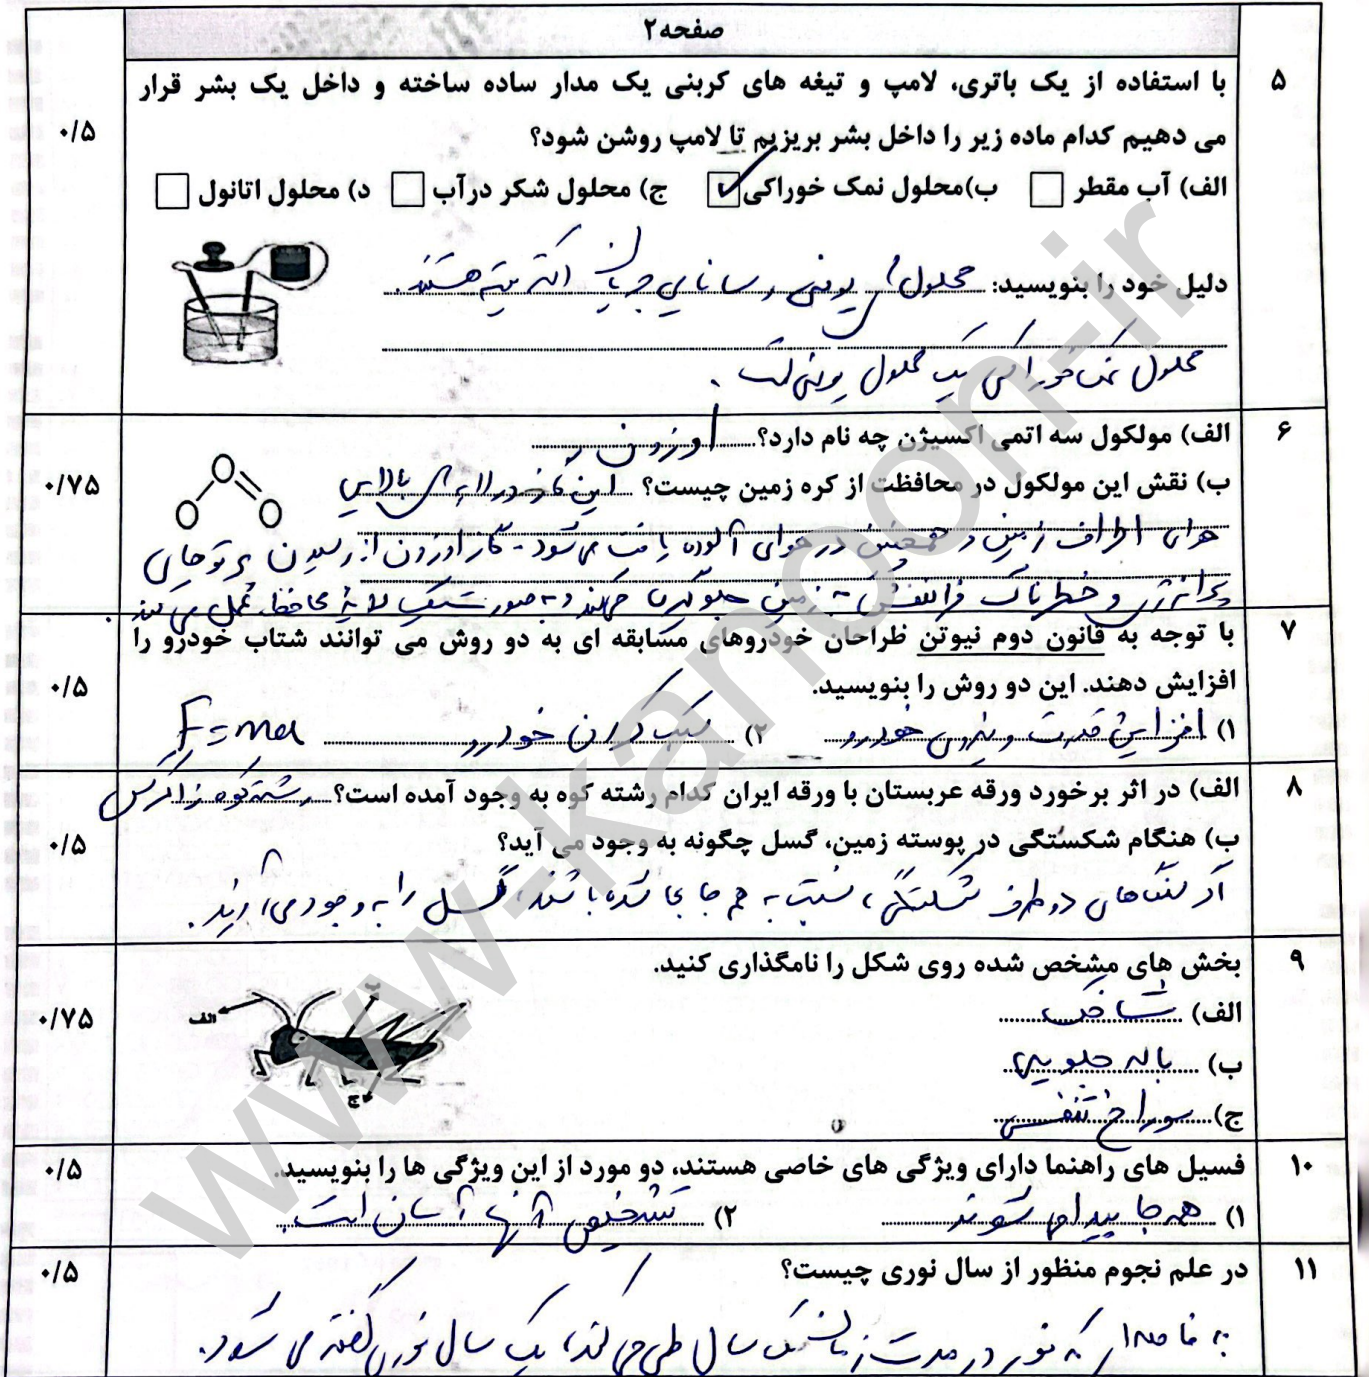 صفحه۲
۵
با استفاده از یک باتری، لامپ و تیغه های کربنی یک مدار ساده ساخته و داخل یک بشر قرار
می دهیم کدام ماده زیر را داخل بشر بریزیم تا لامپ روشن شود؟
۰/۵
الف) آب مقطر ب)محلول نمک خوراکی ✓ ج) محلول شکر درآب د) محلول اتانول
دلیل خود را بنویسید: محلول های یونی رسانای جریان الکتریسیته هستند.
محلول نمک خوراکی یک محلول یونی است.
۶
الف) مولکول سه اتمی اکسیژن چه نام دارد؟ اوزون
ب) نقش این مولکول در محافظت از کره زمین چیست؟ این گاز در لایه های بالایی
۰/۷۵
هوای اطراف زمین و همچنین در هوای آلوده یافت می شود - گاز اوزون از رسیدن پرتوهای
پرانرژی و خطرناک فرابنفش به زمین جلوگیری میکند و به صورت یک لایه محافظ عمل می کند.
۷
با توجه به قانون دوم نیوتن طراحان خودروهای مسابقه ای به دو روش می توانند شتاب خودرو را
افزایش دهند. این دو روش را بنویسید.
۰/۵
۱) افزایش قدرت و نیروی خودرو ۲) سبک کردن خودرو F=ma
۸
الف) در اثر برخورد ورقه عربستان با ورقه ایران کدام رشته کوه به وجود آمده است؟ رشته کوه زاگرس
ب) هنگام شکستگی در پوسته زمین، گسل چگونه به وجود می آید؟
۰/۵
اگر سنگ های دو طرف شکستگی، نسبت به هم جا بجا شده باشند، گسل را به وجود می آورند.
۹
بخش های مشخص شده روی شکل را نامگذاری کنید.
۰/۷۵
الف) شاخک
ب) بال جلویی
ج) سوراخ تنفسی
الف
ب
ج
۱۰
فسیل های راهنما دارای ویژگی های خاصی هستند، دو مورد از این ویژگی ها را بنویسید.
۰/۵
۱) همه جا پیدا می شوند ۲) تشخیص آنها آسان است.
۱۱
در علم نجوم منظور از سال نوری چیست؟
۰/۵
به فاصله ای که نور در مدت زمان یک سال طی می کند، یک سال نوری گفته می شود.
www-kanoon-ir